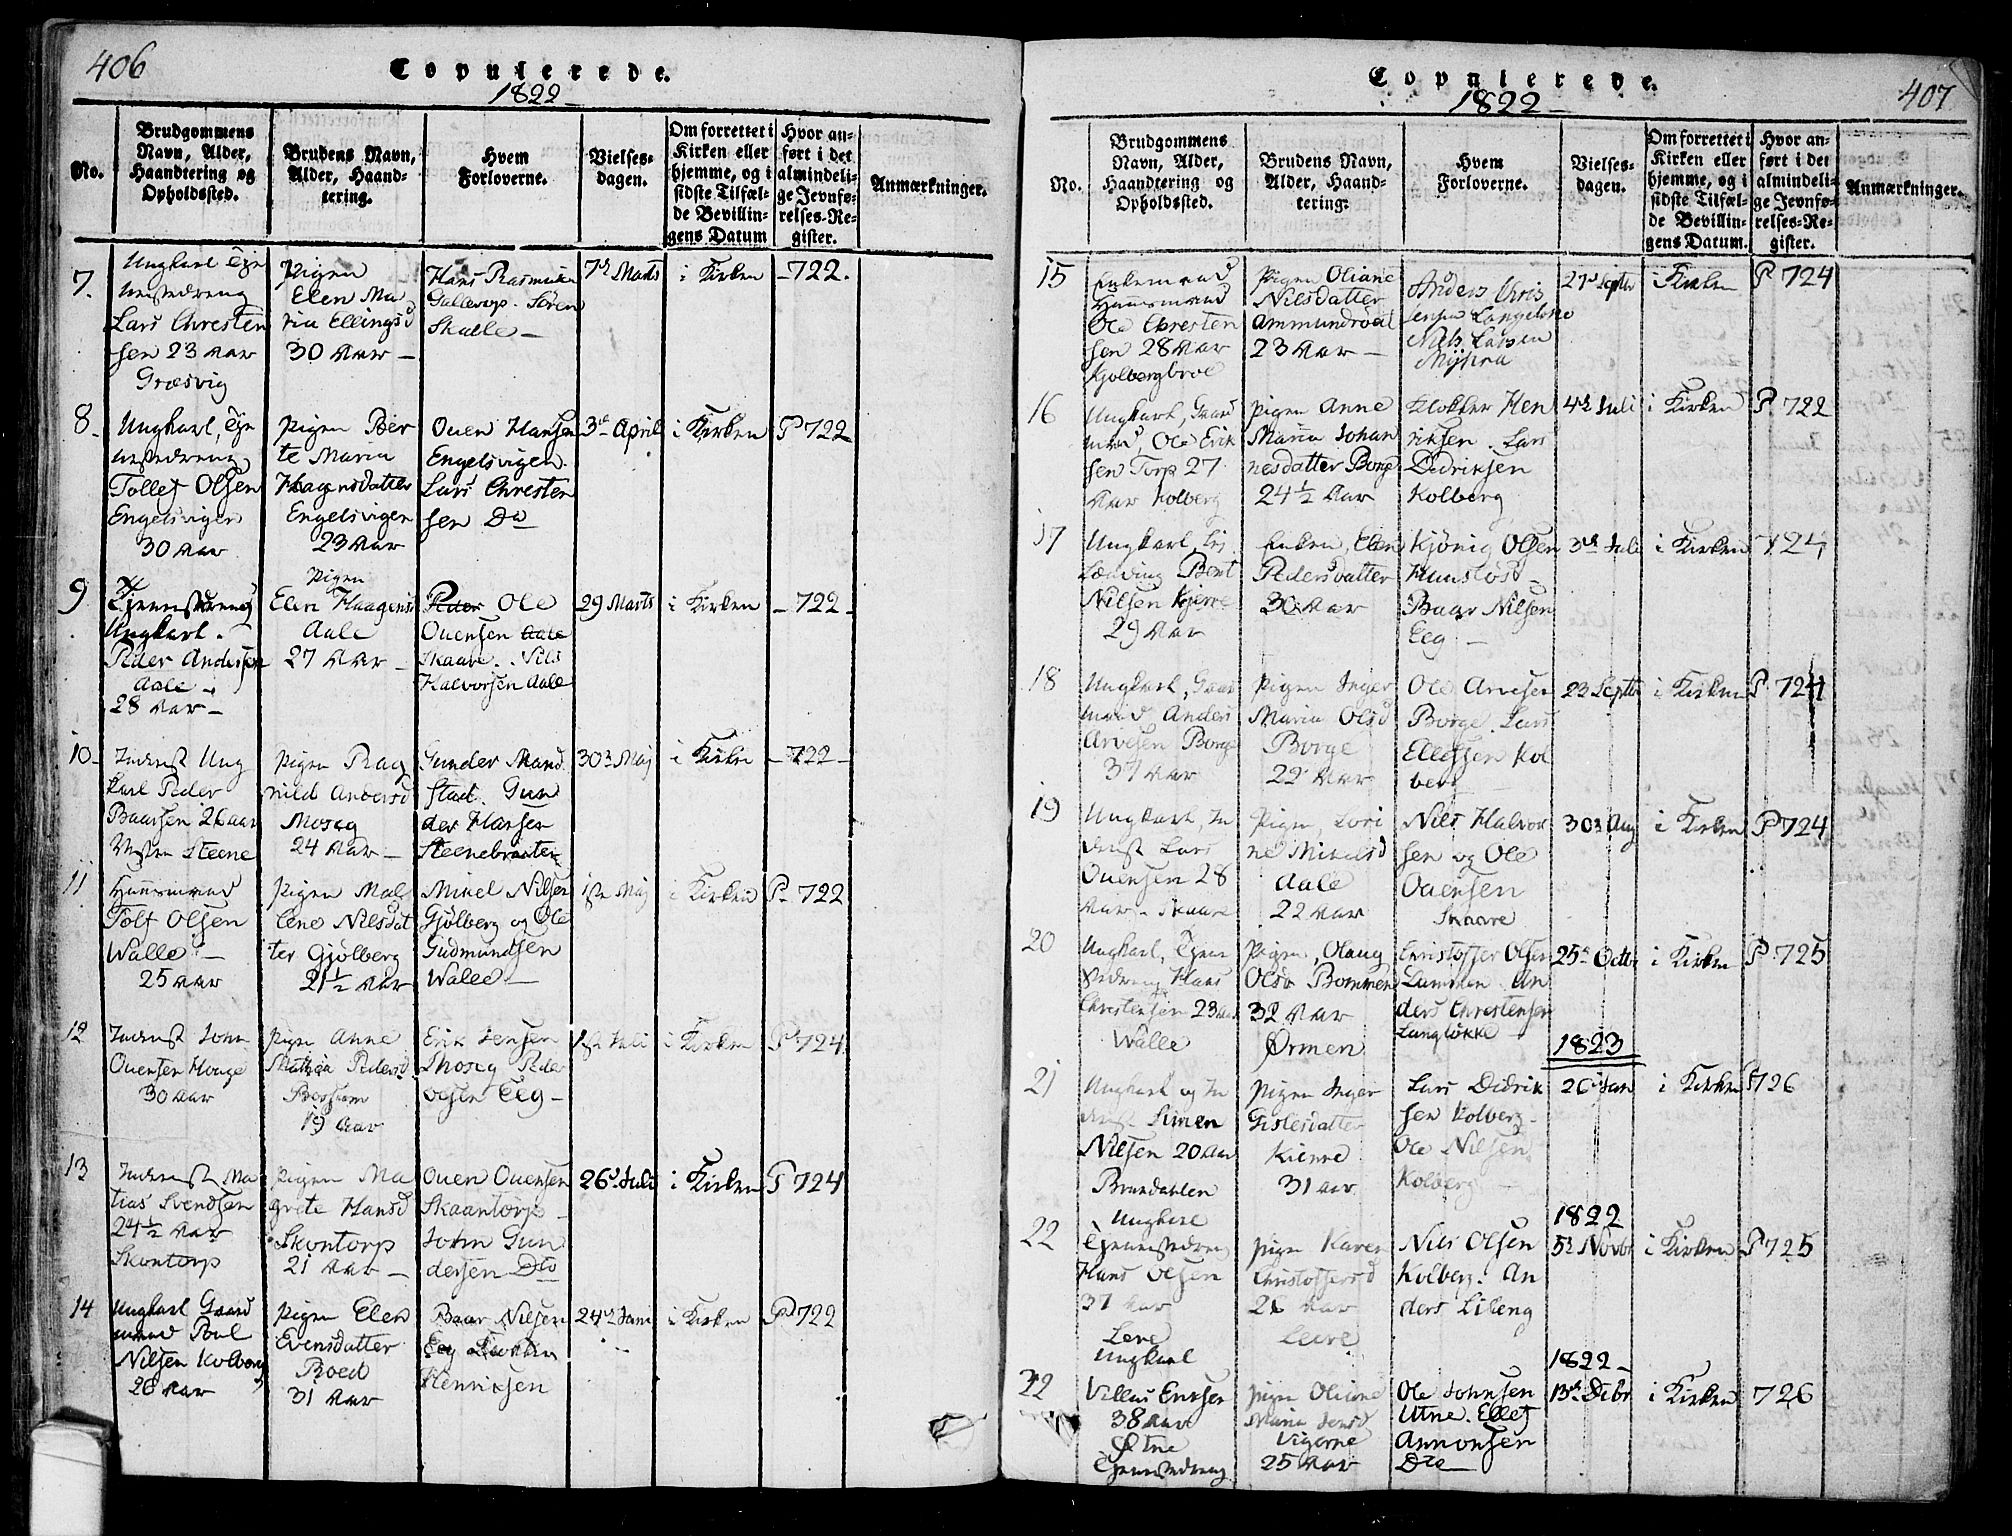 406
Copulerede.
1822
No.
Brudgommens
Navn, Alder,
Haandtering og
Opholdssted.
Brudens Navn,
Alder, Haand-
tering.
Hvem
Forloverne.
Vielses-
dagen.
Om forrettet i
Kirken eller
hjemme, og i
sidste Tilfæl-
de Bevillin-
gens Datum
Hvor an-
ført i det
almindeli-
ge Jevnfø-
relses-Re-
gister.
Anmærkninger.
7.
Ungkarl Tje
nestedreng
Lars Chresten
sen 23 Aar
Græsvig
Pigen
Elen Ma
ria Ellingsd
30 Aar
Hans Rasmusen
Gallerop. Søren
Skalle
7d Marts
i Kirken
722.
8
Ungkarl, Tje
nestedreng
Tollef Olsen
Engelsvigen
30 Aar
Pigen Ber
te Maria
Haagensdatter
Engelsvigen
23 Aar
Ouen Hansen
Engelsvigen.
Lars Chresten
sen Do
3d April
i Kirken
P 722
9
Tjenestedreng
Ungkarl.
Peder Andersen
Aale
28 Aar
Pigen
Elen Haagensd
Aale
27 Aar
Peder Ole
Ouensen Aale
Skaare. Nils
Halvorsen Aale
29 Marts
i Kirken
722
10
Inderst Ung
karl Peder
Baarsen 26 aar
Steene
Pigen Rag
nild Andersd
Moseg
24 Aar
Gunder Mand
stad. Gun
der Hansen
Steenebraaten
30 Maj
i Kirken
722
11
Huusmand
Tolf Olsen
Walle
25 Aar
Pigen Mal
lene Nilsdat
ter Gjølberg
21½ Aar
Mikel Nilsen
Gjølberg og Ole
Gudmundsen
Walle
1ste Maj
i Kirken
P 722
12
Inderst John
Ouensen Houge
30 Aar
Pigen Anne
Mathea Pedersd
19 Aar
Erik Jensen
Moseg Peder
Olsen Eeg
1ste Juli
i Kirken
P 724
13
Inderst Ma
tias Svendsen
24½ Aar
Skontorp
Pigen Ma
grete Hansd
Skontorp
21 Aar
Ouen Ouensen
Skaantorp
John Gun
dersen Do
26 Juli
i Kirken
P 724
14
Ungkarl Gaard
mand Poul
Nilsen Kolberg
28 Aar
Pigen Elen
Evensdatter
Boed
31 Aar
Baar Nilsen
Eeg
Henriksen
24d Juni
i Kirken
P 722
407
Copulerede.
1822
No.
Brudgommens
Navn, Alder,
Haandtering og
Opholdssted.
Brudens Navn,
Alder, Haand-
tering.
Hvem
Forloverne.
Vielses-
dagen.
Om forrettet i
Kirken eller
hjemme, og i
sidste Tilfæl-
de Bevillin-
gens Datum.
Hvor an-
ført i det
almindeli-
ge Jevnfø-
relses-Re-
gister.
Anmærkninger.
15
Enkemand
Huusmand
Ole Chresten
sen 28 Aar
Kjolbergbroe
Pigen Oliane
Nilsdatter
Ammundrød
23 Aar
Anders Chris
tensen
Nils Larsen
27d Septbr
i Kirken
P 724
16
Ungkarl, Gaard
mand Ole Erik
sen Torp 27
Aar Kolberg
Pigen Anne
Maria Johan
nesdatter Borge
24½ Aar
Klokker Hen
riksen. Lars
Didriksen
Kolberg
4de Juli
i Kirken
P 722
17
Ungkarl,
Bent
Nilsen Kjerre
29 Aar
Enken, Elen
Pedersdatter
30 Aar
Kjønig Olsen
Hunsløst
Baar Nilsen
Eeg
3de Juli
i Kirken
724
18
Ungkarl, Gaard
mand Anders
Arvesen Borge
37 Aar
Pigen Inger
Maria Olsd
Borge
22 Aar
Ole Arvesen
Borge. Lars
Ellefsen Kol
berg
23 Septbr
i Kirken
P. 724
19
Ungkarl, In
derst Lars
Ouensen 28
Aar Skaare
Pigen, Lori
ne Mikelsd
Aale
22 Aar
Nils Halvor
sen og Ole
Ouensen
Skaare
30 Aug
i Kirken
P 724
20
Ungkarl, Tjene
stedreng Hans
Christensen 23 Aar
Walle
Pigen, Olaug
Olsd Bommen
32 Aar
Ørmen
Christoffer Olsen
An
ders Christensen
Langløkke
25de Octbr
i Kirken
P. 725
1823
21
Ungkarl og In
derst Simen
Nilsen 20 Aar
Brundahlen
Pigen Inger
Gislesdatter
Kierre
31 Aar
Lars Didrik
sen Kolberg
Ole Nilsen
Kolberg
26 Jan
i Kirken
726
1822
22
Ungkarl
Tjenestedreng
Hans Olsen
37 Aar
Lere
Pigen Karen
Christoffersd
26 Aar
Leere
Nils Olsen
Kolberg. An
ders Lileng
5te Novbr
i Kirken
P 725
1822
22
Ungkarl
Villas Enersen
38 Aar
Øtne
Tjenestedreng
Pigen Oliane
Maria Jensd
Vigerne
25 Aar
Ole Johnsen
Utne. Ellef
Annonsen
Do
13de Debr
i Kirken
726